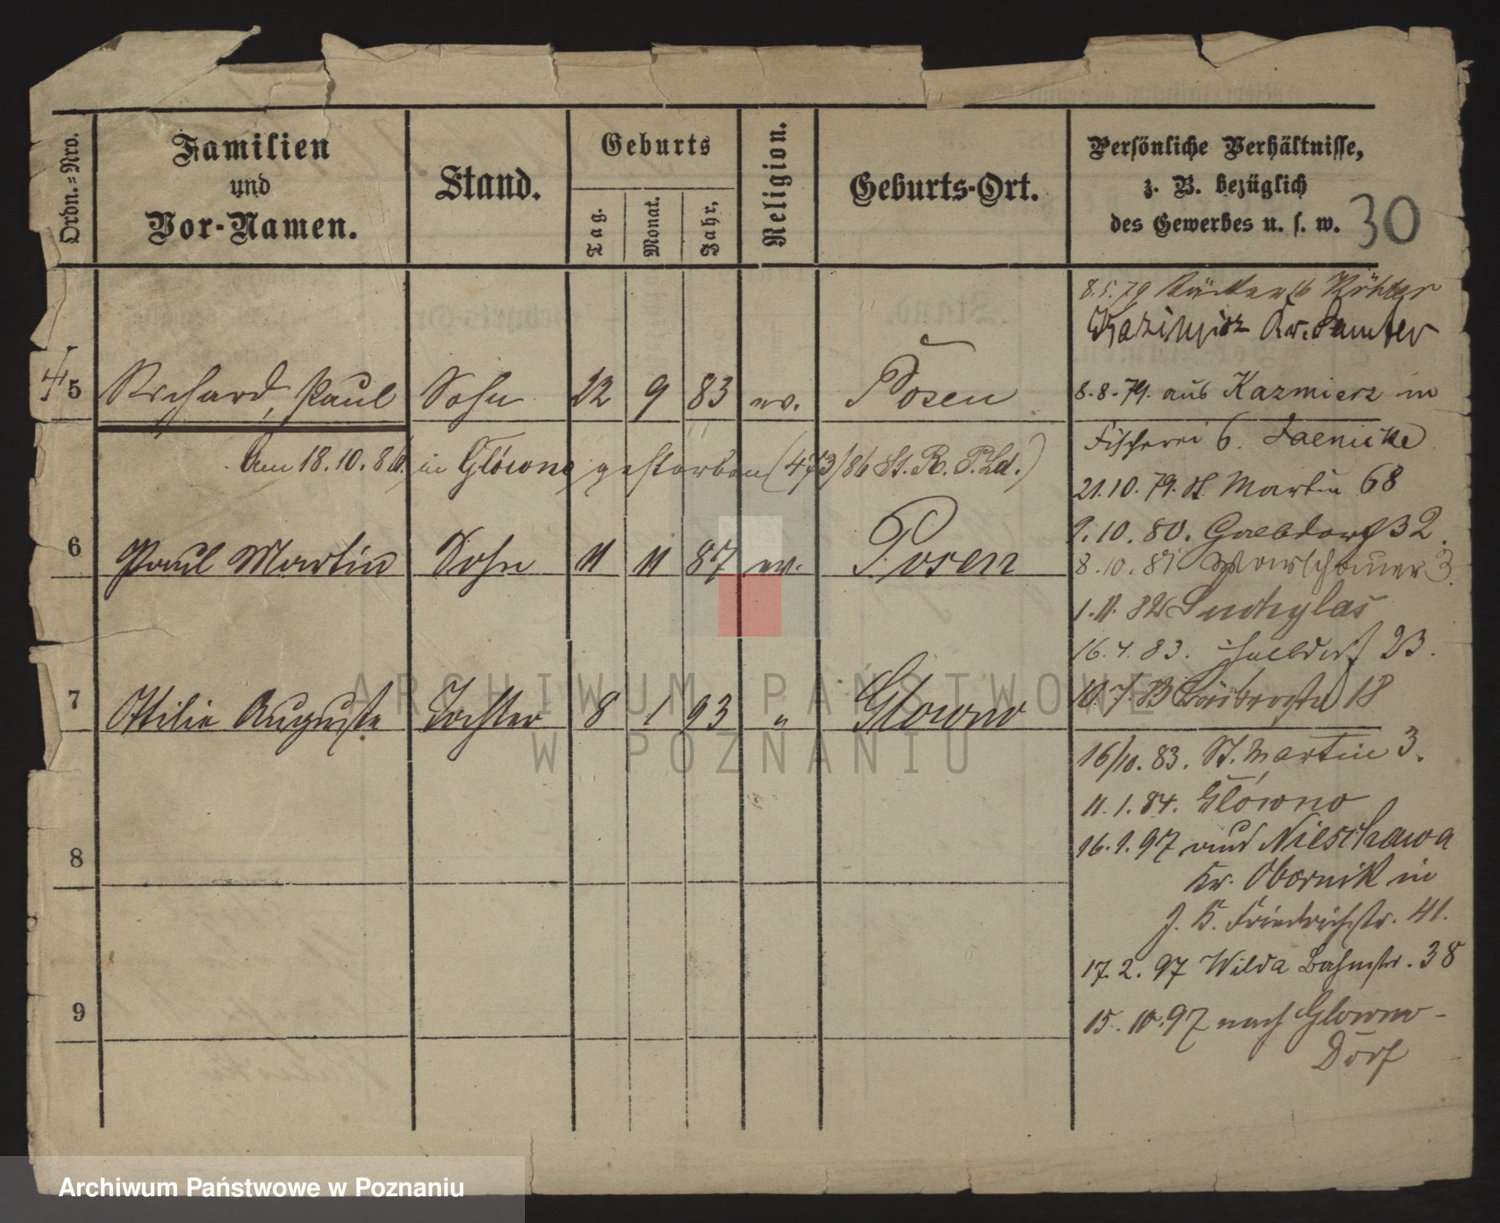 Ordn.=Nro.
Familien
und
Vor-Namen.
Stand.
Geburts
Tag.
Monat.
Jahr,
Religion.
Geburts-Ort.
Persönliche Verhältnisse,
z. B. bezüglich
des Gewerbes u. s. w.
30
8.5.79 b Köhler
Kazmierz Kr. Samter
4
5 Richard, Paul Sohn 22 9 83 ev. Posen
8.8.79. aus Kazmierz in
Fischerei 6. Jaenicke
Am 18.10.86. in Glówno gestorben (473/86 St. R. P. Ld.)
21.10.79. St. Martin 68
6 Paul Martin Sohn 11 11 87 ev. Posen
9.10.80. Halbdorf 32.
8.10.81 Warschauer 3.
1.11.82
16.4.83. Halbdorf 23.
7 Ottilie Auguste Tochter 8 1 93 " Glowno
10.7.83 18
16/10.83. St. Martin 3.
11.1.84. Glówno
8
16.1.97 aus Nieschawa
Kr. Obornik in
J. K. Friedrichstr. 41.
17.2.97 Wilda Bahnstr. 38
9
15.10.97 nach Glowno-
Dorf
ARCHIWUM PAŃSTWOWE
W POZNANIU
Archiwum Państwowe w Poznaniu